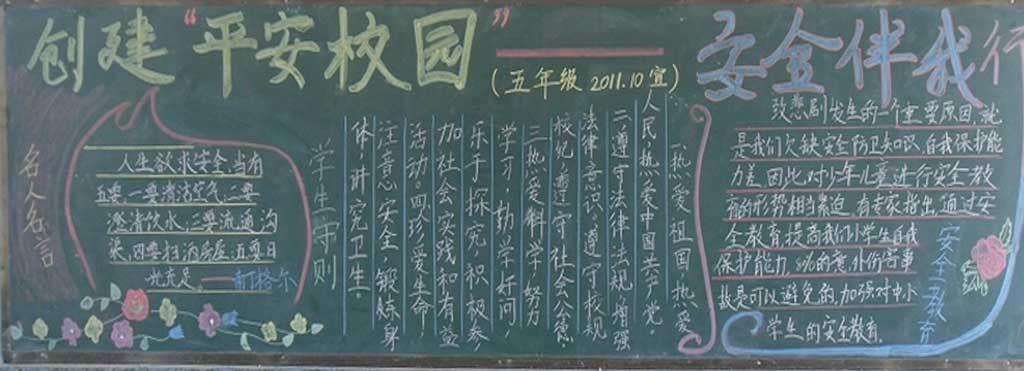 创建“平安校园”
(五年级 2011.10宣)
安全伴我行
名人名言
人生欲求安全,当有
五要。一要清洁空气,二要
澄清饮水,三要流通沟
渠,四要扫洒房屋,五要日
光充足。——南丁格尔
学生守则
一热爱祖国,热爱
人民,热爱中国共产党。
二遵守法律法规,增强
法律意识。遵守校规
校纪,遵守社会公德
三热爱科学,努力
学习,勤学好问,
乐于探究,积极参
加社会实践和有益
活动。四珍爱生命
注意安全,锻炼身
体,讲究卫生。
致悲剧发生的一个重要原因,就
是我们欠缺安全防卫知识,自我保护能
力差。因此对少年儿童进行安全教
育的形势相当紧迫。有专家指出通过安
全教育提高我们小学生自我
保护能力,80%的意外伤害事
故是可以避免的,加强对中小
学生的安全教育。
安全教育